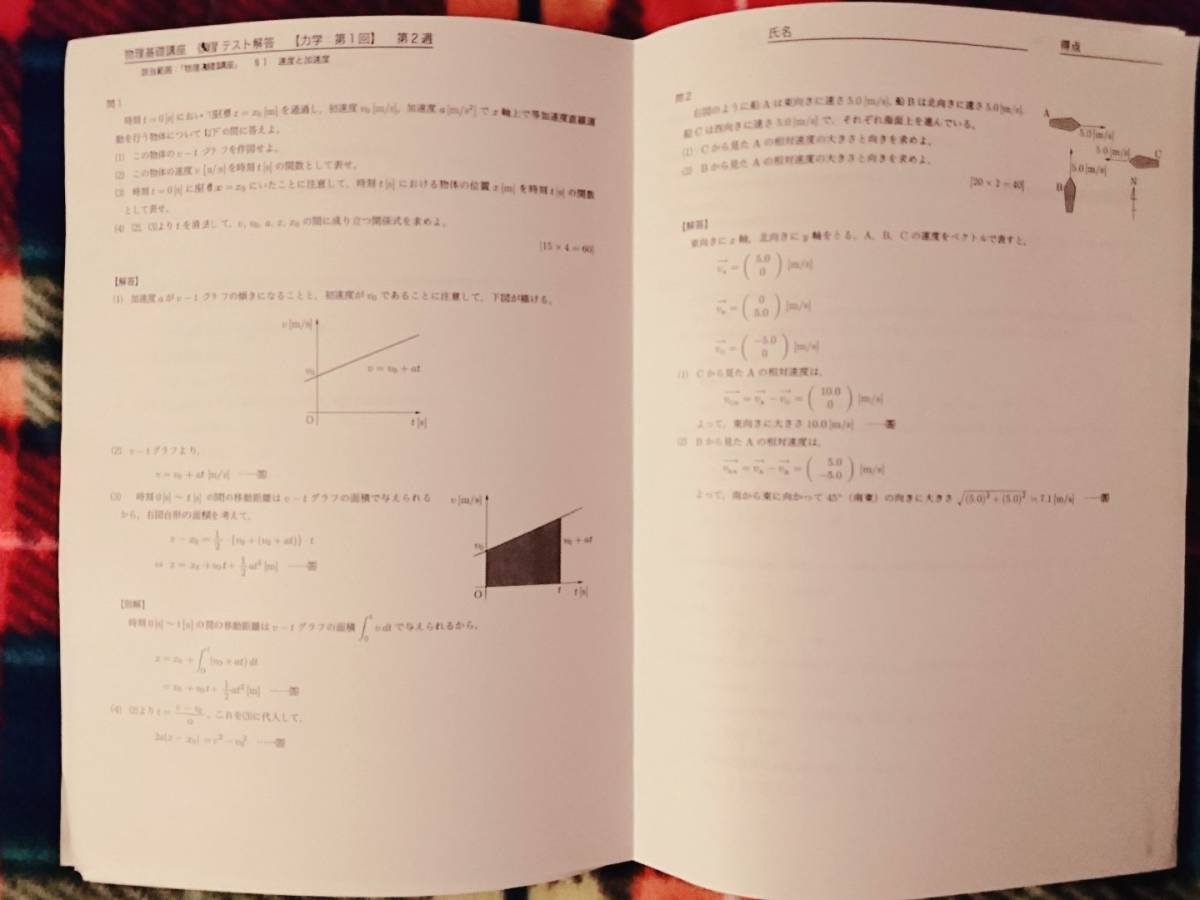 物理基礎講座 復習テスト解答 【力学 第1回】 第2週
該当範囲:「物理基礎講座」 §1 速度と加速度
問1
時刻 t=0[s] において座標 x=x₀[m] を通過し、初速度 v₀[m/s]、加速度 a[m/s²] で x 軸上で等加速度直線運
動を行う物体について以下の問に答えよ。
(1) この物体の v-t グラフを作図せよ。
(2) この物体の速度 v[m/s] を時刻 t[s] の関数として表せ。
(3) 時刻 t=0[s] に座標 x=x₀ にいたことに注意して、時刻 t[s] における物体の位置 x[m] を時刻 t[s] の関数
として表せ。
(4) (2), (3)より t を消去して、v, v₀, a, x, x₀ の間に成り立つ関係式を求めよ。
[15×4=60]
【解答】
(1) 加速度 a が v-t グラフの傾きになることと、初速度が v₀ であることに注意して、下図が描ける。
v[m/s]
v₀
v=v₀+at
O
t[s]
(2) v-t グラフより、
v=v₀+at [m/s] ……答
(3) 時刻 0[s]~t[s] の間の移動距離は v-t グラフの面積で与えられる
から、右図台形の面積を考えて、
x-x₀=1/2・{v₀+(v₀+at)}・t
⇔ x=x₀+v₀t+1/2at² [m] ……答
v[m/s]
v₀
v₀+at
O
t
t[s]
【別解】
時刻 0[s]~t[s] の間の移動距離は v-t グラフの面積 ∫₀ᵗ v dt で与えられるから、
x=x₀+∫₀ᵗ(v₀+at)dt
=x₀+v₀t+1/2at² [m] ……答
(4) (2)より t=(v-v₀)/a、これを(3)に代入して、
2a(x-x₀)=v²-v₀² ……答
氏名
得点
問2
右図のように船 A は東向きに速さ 5.0[m/s]、船 B は北向きに速さ 5.0[m/s]、
船 C は西向きに速さ 5.0[m/s] で、それぞれ海面上を進んでいる。
(1) C から見た A の相対速度の大きさと向きを求めよ。
(2) B から見た A の相対速度の大きさと向きを求めよ。
[20×2=40]
A
5.0[m/s]
5.0[m/s]
C
5.0[m/s]
B
N
【解答】
東向きに x 軸、北向きに y 軸をとる。A、B、C の速度をベクトルで表すと、
v⃗_A=(5.0 0)[m/s]
v⃗_B=(0 5.0)[m/s]
v⃗_C=(-5.0 0)[m/s]
(1) C から見た A の相対速度は、
v⃗_CA=v⃗_A-v⃗_C=(10.0 0)[m/s]
よって、東向きに大きさ 10.0[m/s] ……答
(2) B から見た A の相対速度は、
v⃗_BA=v⃗_A-v⃗_B=(5.0 -5.0)[m/s]
よって、南から東に向かって 45°(南東)の向きに大きさ √((5.0)²+(5.0)²)≒7.1[m/s] ……答